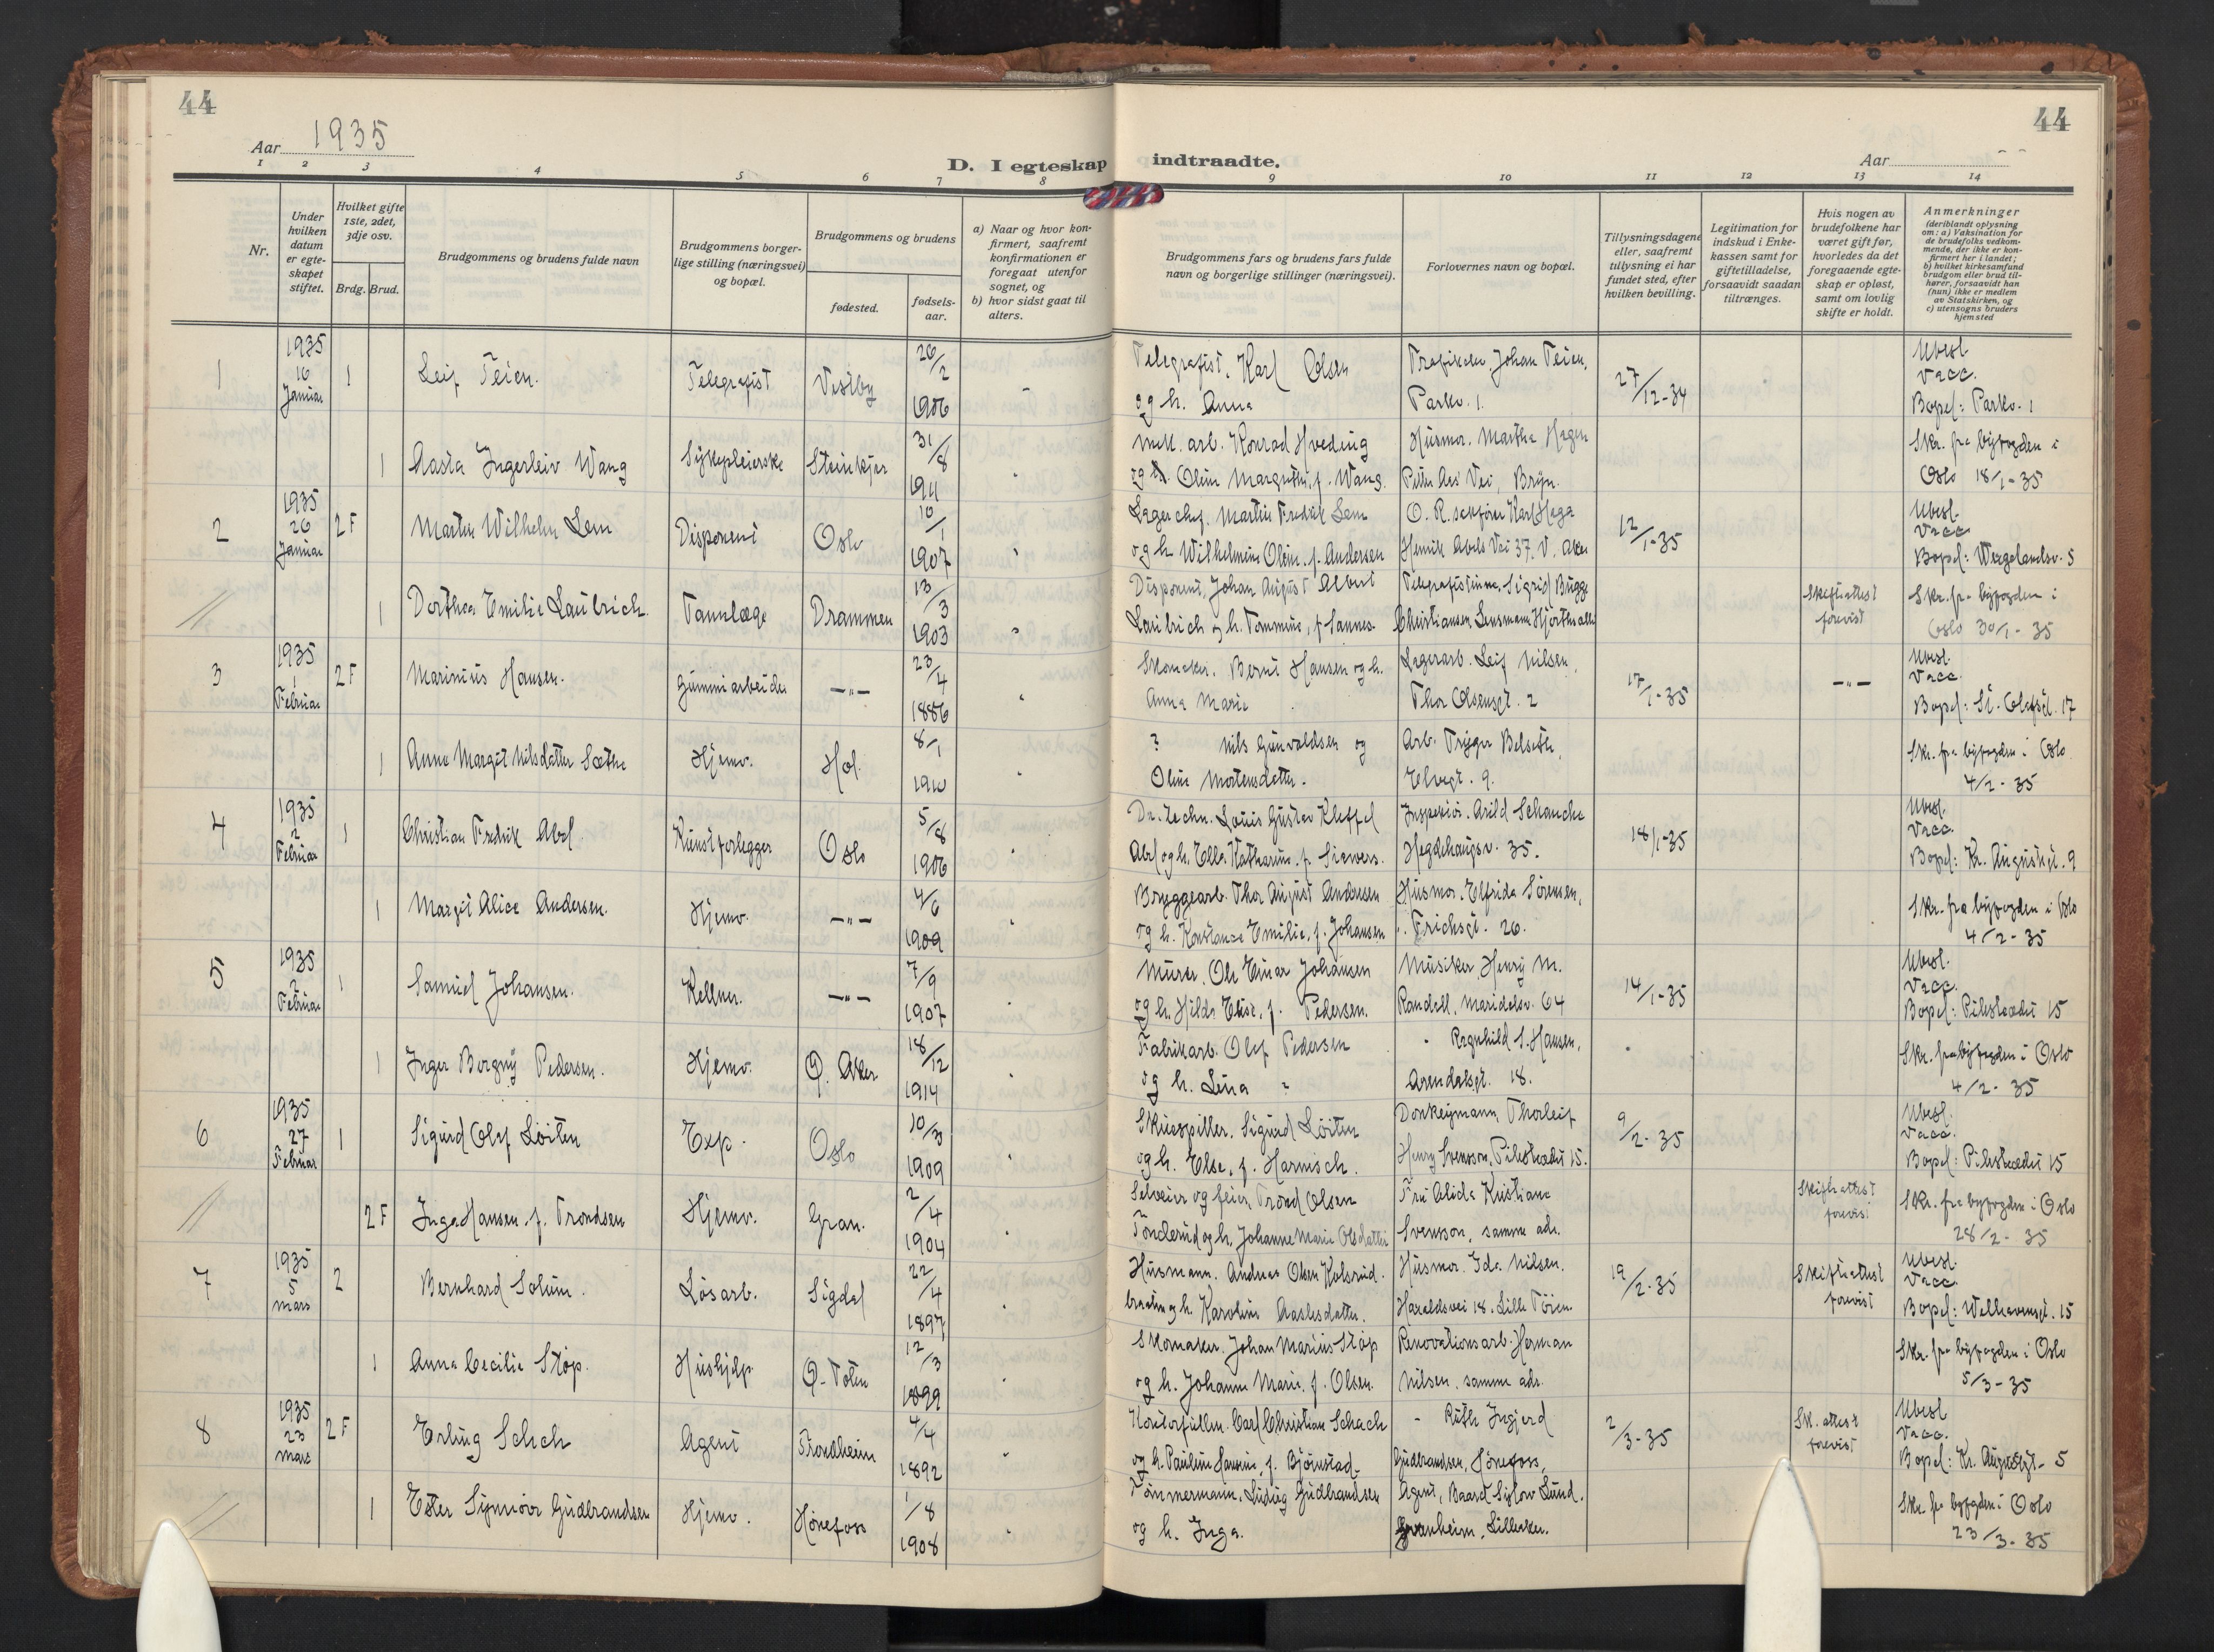 44
44
Aar 1935
D. I egteskap indtraadte.
Aar
1 2 3 4 5 6 7 8 9 10 11 12 13 14
Nr.
Under hvilken datum er egteskapet stiftet.
Hvilket gifte 1ste, 2det, 3dje osv.
Brdg. Brud.
Brudgommens og brudens fulde navn
Brudgommens borgerlige stilling (næringsvei) og bopæl.
Brudgommens og brudens
fødested.
fødselsaar.
a) Naar og hvor konfirmert, saafremt konfirmationen er foregaat utenfor sognet, og
b) hvor sidst gaat til alters.
Brudgommens fars og brudens fars fulde navn og borgerlige stillinger (næringsvei).
Forlovernes navn og bopæl.
Tillysningsdagene eller, saafremt tillysning ei har fundet sted, efter hvilken bevilling.
Legitimation for indskud i Enkekassen samt for giftetilladelse, forsaavidt saadan tiltrænges.
Hvis nogen av brudefolkene har været gift før, hvorledes da det foregaaende egteskap er opløst, samt om lovlig skifte er holdt.
Anmerkninger (deriblandt oplysning om: a) Vaksination for de brudefolks vedkommende, der ikke er konfirmert her i landet; b) hvilket kirkesamfund brudgom eller brud tilhører, forsaavidt han (hun) ikke er medlem av Statskirken, og c) utensogns bruders hjemsted
1 1935 16 Januar 1 Leif Teien. Telegrafist Vestby 26/2 1906 Telegrafist. Karl Olsen og h. Anna Johan Teien, Parkv. 1. 27/12-34 Ubesl. Vacc. Bopel: Parkv. 1
1 Aasta Ingerleiv Wang Sykepleierske Steinkjer 31/8 1911 mek. arb. Konrad Hveding og Oline Margrethe, f. Wang. Husmor. Marthe Hagen Petter Aas' Vei, Bryn. Skr. fra byfogden i Oslo 18/1-35
2 1935 26 Januar 2 F Martin Wilhelm Lem Disponent Oslo 10/1 1907 Lagerchef. Martin Fredrik Lem og h. Wilhelmine Oline, f. Andersen O. R. sakfører Karl Haga Henrik Abels Vei 37. V. Aker 12/1-35 Ubesl. Vacc. Bopel: Wergelandsv. 5
1 Dorthea Emilie Laubrich. Tannlæge Drammen 13/3 1903 Disponent, Johan August Albert Laubrich og h. Tommine, f. Sannes. Telegrafistinne. Sigrid Bugge Christiansen Lensmann Hjorths alle Skifteattest forevist Skr. fra byfogden i Oslo 30/1-35
3 1935 1 Februar 2 F Marinius Hansen. Gummiarbeider —"— 23/4 1886 Skomaker. Bernt Hansen og h. Anna Marie Lagerarb. Leif Nilsen, Thor Olsensgt. 2 17/1-35 —"— Ubesl. Vacc. Bopel: St. Olafsgt. 17
1 Anne Margit Nilsdatter Sæthe Hjemv. Hol. 8/1 1910 ? Nils Gunvaldsen og Oline Mortensdatter. Arb. Trygve Belseth, Elvegt. 9. Skr. fra byfogden i Oslo 4/2-35
4 1935 2 Februar 1 Christian Fredrik Abel Kunstforlegger Oslo 5/8 1906 Dr. techn. Louis Gustav Kleffel Abel og h. Ella Katharina, f. Sievers. Inspektør. Arild Schancke Hegdehaugsv. 35. 18/1-35 Ubesl. Vacc. Bopel: Kr. Augustsgt. 9
1 Margit Alice Andersen. Hjemv. —"— 4/6 1909 Bryggearb. Thor August Andersen og h. Konstanse Emilie, f. Johansen Husmor. Elfrida Sörensen, Frichsgt. 26. Skr. fra byfogden i Oslo 4/2-35
5 1935 2 Februar 1 Samuel Johansen. Kellner. —"— 7/9 1907 Murer. Ole Einar Johansen og h. Hilda Elise, f. Pedersen. Musiker Henry M. Randell, Maridalsv. 64 14/1-35 Ubesl. Vacc. Bopel: Pilestrædet 15
1 Inger Borgny Pedersen. Hjemv. Ö. Aker 18/12 1914 Fabrikarb. Olef Pedersen og h. Lina Ragnhild S. Hansen, Arendalsgt. 18. Skr. fra byfogden i Oslo 4/2-35
6 1935 27 Februar 1 Sigurd Olaf Löiten Exp. Oslo 10/3 1909 Skuespiller. Sigurd Löiten og h. Else, f. Harnisch. Donkeymann, Thorleif Henry Svensson, Pilestrædet 15. 9/2-35 Ubesl. Vacc. Bopel: Pilestrædet 15
2 F Inga Hansen. f. Trondsen Hjemv. Gran. 2/4 1904 Selveier og feier, Trond Olsen Tonderud og h. Johanne Marie Olsdatter Fru Alida Kristiane Svensson, samme adr. Skifteattest forevist Skr. fra byfogden i Oslo 28/2-35
7 1935 5 Mars 2 Bernhard Solum. Lösarb. Sigdal 22/4 1897 Husmann. Andreas Olsen Kolsrud. og h. Karoline Aaslesdatter. Husmor. Ida Nilsen. Haraldsvei 18. Lille Töien. 19/2-35 Skifteattest forevist Ubesl. Vacc. Bopel: Welhavensgt. 15
1 Anna Cecilie Stöp. Hushjelp Ö. Toten 12/3 1899 Skomaker. Johan Marius Stöp og h. Johanne Marie, f. Olsen. Renovationsarb. Herman Nilsen, samme adr. Skr. fra byfogden i Oslo 5/3-35
8 1935 23 Mars 2 F Erling Schach Agent Trondheim 4/4 1892 Kontorfullm. Carl Christian Schach og h. Pauline Hansine, f. Björnstad. Ruth Ingjerd Gudbrandsen, Hönefoss, 2/3-35 Sk. attest forevist Ubesl. Vacc. Bopel: Kr. Augustsgt. 5
1 Ester Synnöve Gudbrandsen Hjemv. Hönefoss 1/8 1908 Tömmermann. Ludvig Gudbrandsen og h. Inga. Agent, Baard Sylow Lund. Granheim, Lilleaker. Skr. fra byfogden i Oslo 23/3-35